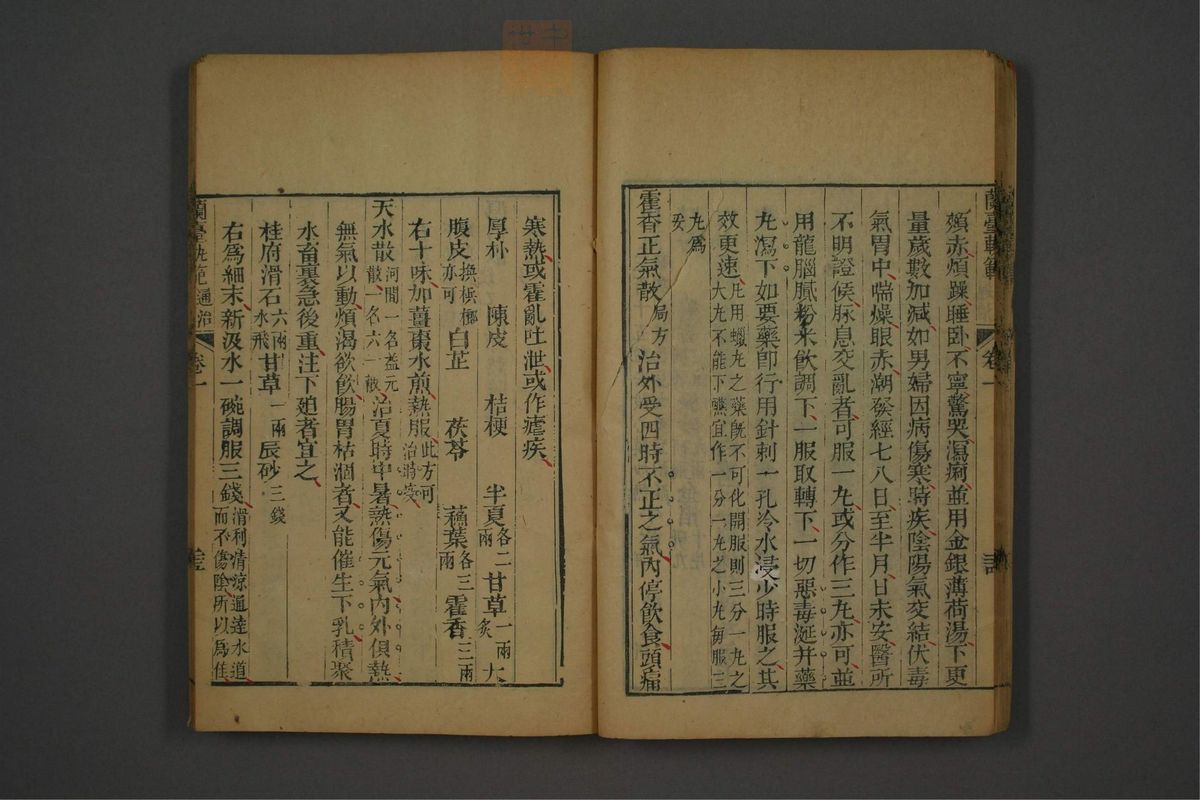 蘭臺軌範
卷一
頰赤煩躁睡卧不寧驚哭瀉痢並用金銀薄荷湯下更
量歲數加減如男婦因病傷寒時疾陰陽氣交結伏毒
氣胃中喘燥眼赤潮發經七八日至半月日未安醫所
不明證候脉息交亂者可服一丸或分作三丸亦可並
用龍腦膩粉米飲調下一服取轉下一切惡毒涎并藥
丸瀉下如要藥卽行用針刺一孔冷水浸少時服之其
效更速凡用蠟丸之藥旣不可化開服則三分一丸之大丸不能下嚥宜作一分一丸之小丸每服三
丸爲妥
藿香正氣散局方治外受四時不正之氣內停飲食頭痛
寒熱或霍亂吐泄或作瘧疾
厚朴 陳皮 桔梗 半夏各二兩 甘草一兩炙 大
腹皮換檳榔亦可 白芷 茯苓 蘇葉各三兩 藿香三兩
右十味加薑棗水煎熱服此方可治時疫
天水散河間一名益元散一名六一散治夏時中暑熱傷元氣內外俱熱
無氣以動煩渴欲飲腸胃枯涸者又能催生下乳積聚
水畜裏急後重注下廹者宜之
桂府滑石六兩水飛 甘草一兩 辰砂三錢
右爲細末新汲水一碗調服三錢滑利清涼通達水道而不傷陰所以爲佳
蘭臺軌範 通治
卷一